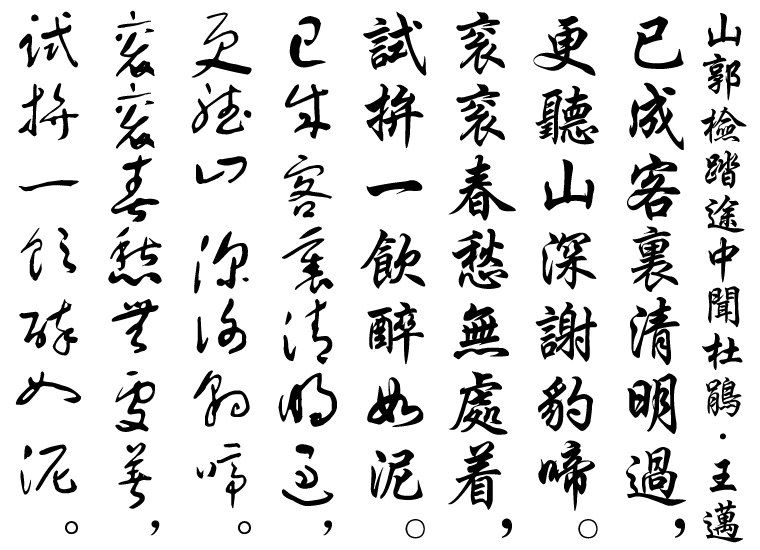 山郭檢踏途中聞杜鵑・王邁
已成客裏清明過，
更聽山深謝豹啼。
衮衮春愁無處着，
試拚一飲醉如泥。
已成客裏清明過，
更聽山深謝豹啼。
衮衮春愁無處著，
試拚一飲醉如泥。